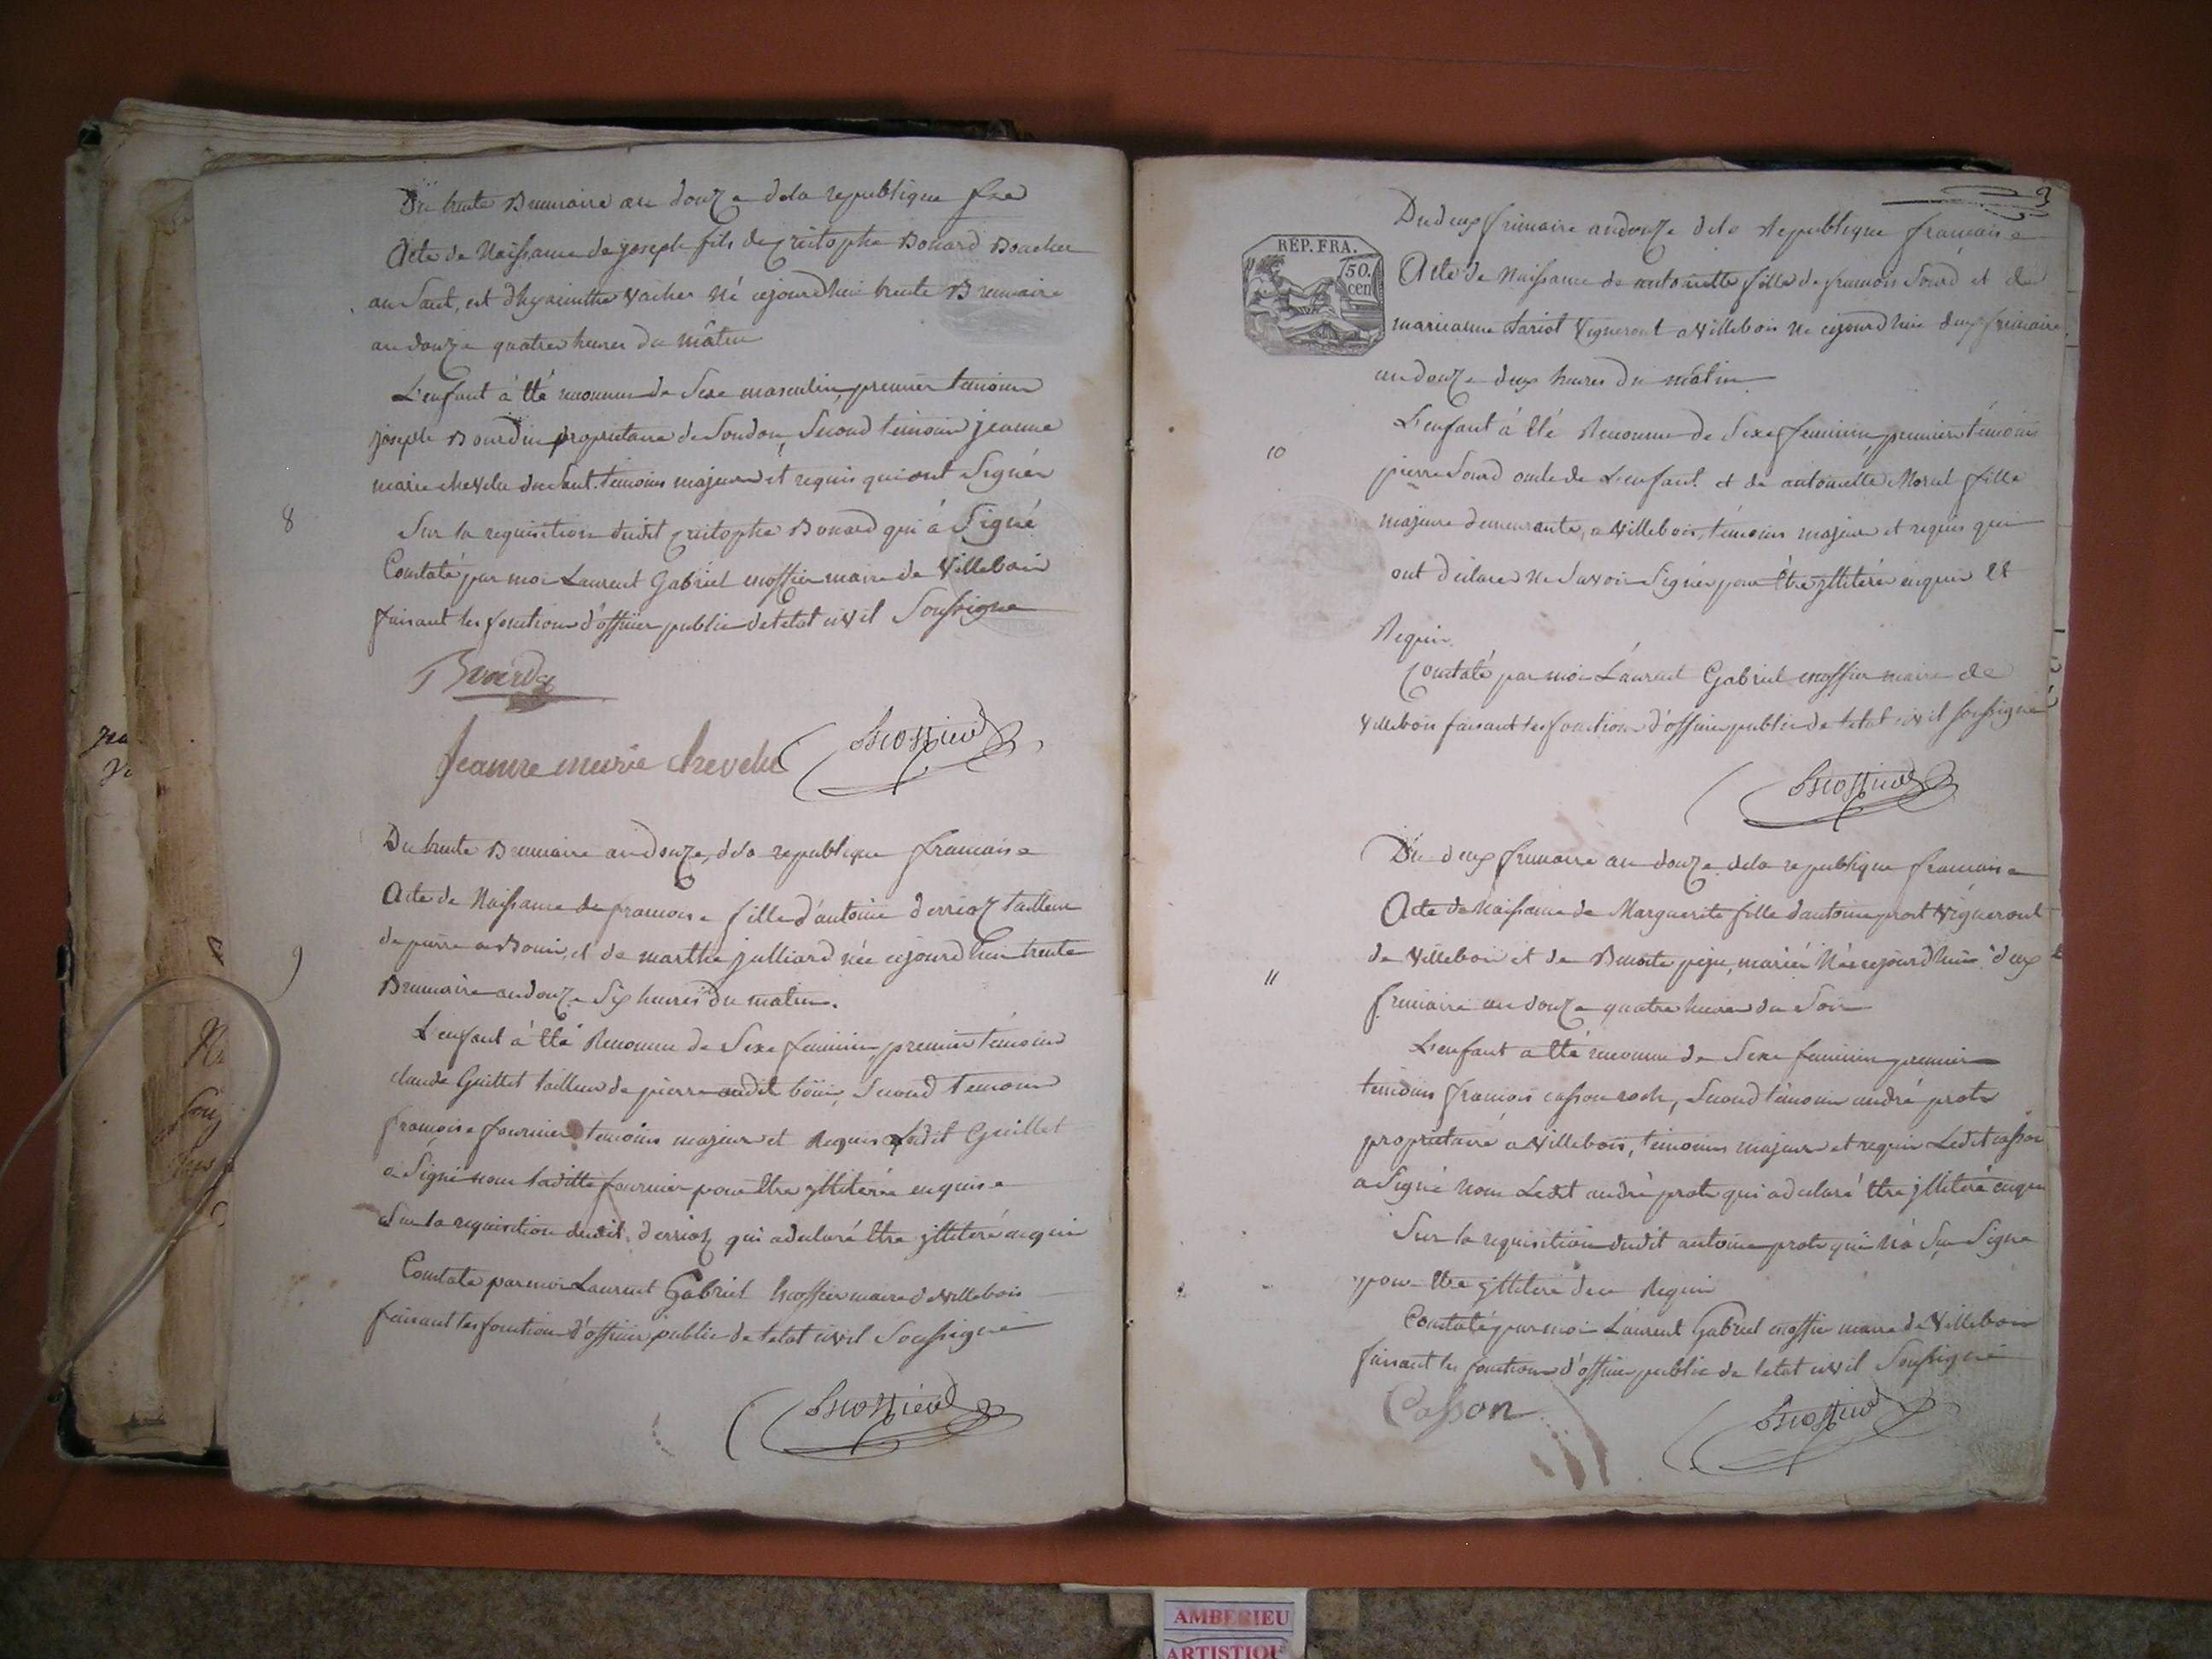 Du trente Brumaire an douze dela republique fse
Acte de Naissance de joseph fils de cristophe Bonard Boucher
au Saut, et d'hyacinthe Vacher Né cejourdhui trente Brumaire
an douze quatre heures du mâtin
L'enfant à êté reconnu de Sexe masculin, premier temoin
joseph Bourdin proprietaire de Soudon, Second temoin jeanne
marie chevelu du Saut. temoins majeurs et requis qui ont Signér
8
Sur la requisition dudit cristophe Bonard qui à Signé
Constaté par moi Laurent Gabriel escoffier maire de Villebois
faisant les fonctions d'officier public de letat civil Soussigné
Jeanne marie chevelu
Escoffier
Du trente Brumaire an douze, dela republique francaise
Acte de Naissance de francoise fille d'antoine derrioz tailleur
de pierre a Bouis, et de marthe julliard née cejourdhui trente
9
Brumaire an douze Six heures du matin.
L'enfant à êté Reconnu de Sexe feminin, premier témoins
claude Guillet tailleur de pierre audit boüis, Second temoin
francoise fournier temoins majeurs et Requis Ledit Guillet
a Signé non laditte fournier pour être jllitérée enquise
Sur la requisition dudit derrioz qui a déclaré être jllitéré enquis
Constaté par moi Laurent Gabriel Escoffier maire de Villebois
faisant les fonctions d'officier public de letat civil Soussigné
Escoffier
3
Du deux frimaire an douze dela Republique française
REP. FRA.
50.
cen
Acte de Naissance de antoinette fille de francois Sourd et de
marieanne Lariot Vigneront a Villebois Né cejourdhui deux frimaire
an douze deux heures du mâtin
L'enfant à êté Reconnu de Sexe feminin, premier témoins
10
pierre Sourd oncle de L'enfant. et de antoinette Morel fille
majeure demeurante, a Villebois, témoins majeurs et requis qui
ont déclaré Ne Savoir Signér pour être jllitérés enquis et
Requis.
Constaté par moi Laurent Gabriel escoffier maire de
Villebois faisant les fonctions d'officier public de letat civil soussigné
Escoffier
Du deux frimaire an douze dela republique francaise
Acte de Naissance de Marguerite fille dantoine prost Vigneront
de Villebois et de Benoite peju, mariée Née cejourdhui deux
11
frimaire an douze quatre heures du Soir
L'enfant a êté reconnu de Sexe feminin premier
temoins francois casson roch, Second témoin andré prost
proprietaire a Villebois, témoins majeurs et requis Ledit casson
a Signé non Ledit andré prost qui a déclaré être jllitéré enquis
Sur la requisition dudit antoine prost qui n'à Su Signé
pour être jllitéré de ce Requis
Constaté par moi Laurent Gabriel escoffier maire de Villebois
faisant les fonctions d'officier public de letat civil Soussigné
Casson
Escoffier
AMBERIEU
ARTISTIQU